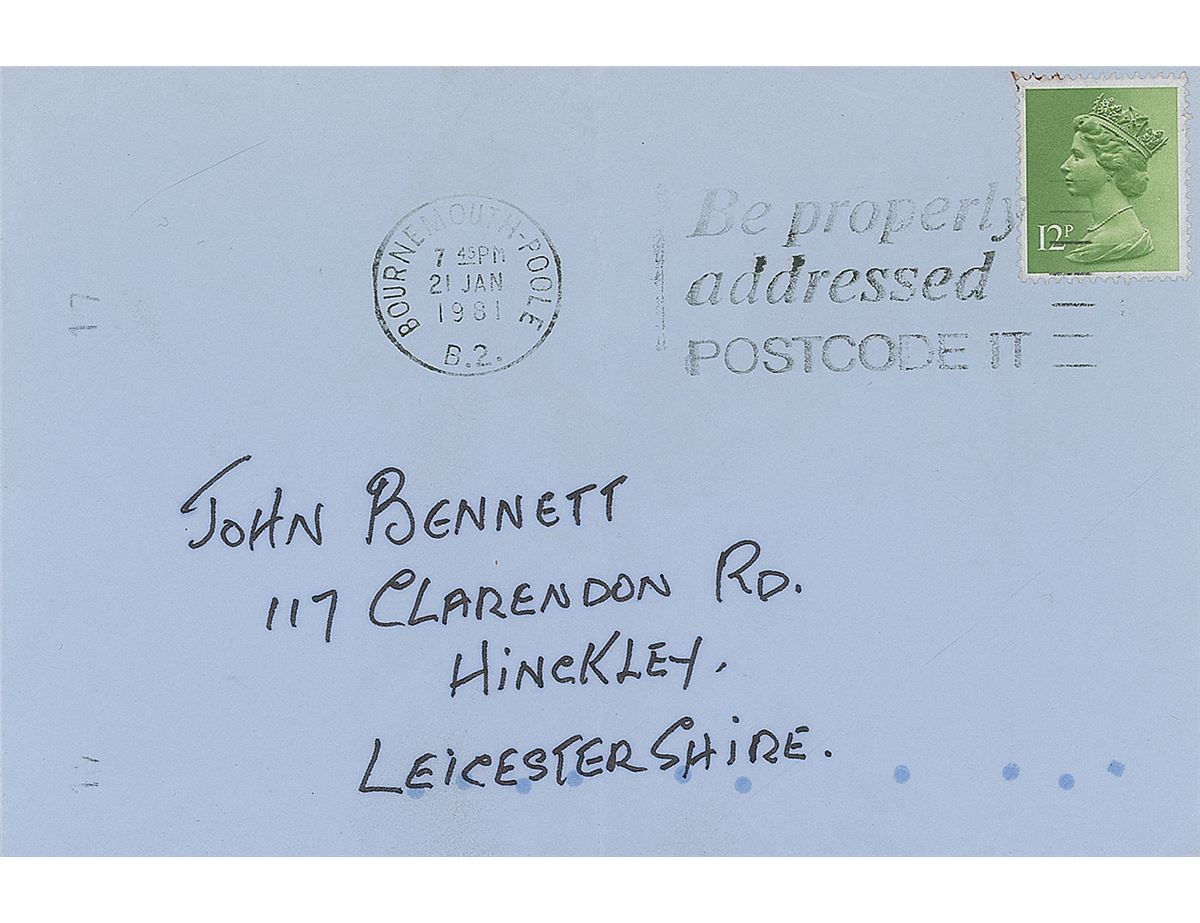 BOURNEMOUTH-POOLE
7 45PM
21 JAN
1981
B.2.
Be properly
addressed
POSTCODE IT
12P
17
JOHN BENNETT
117 CLARENDON RD.
HINCKLEY.
LEICESTERSHIRE.